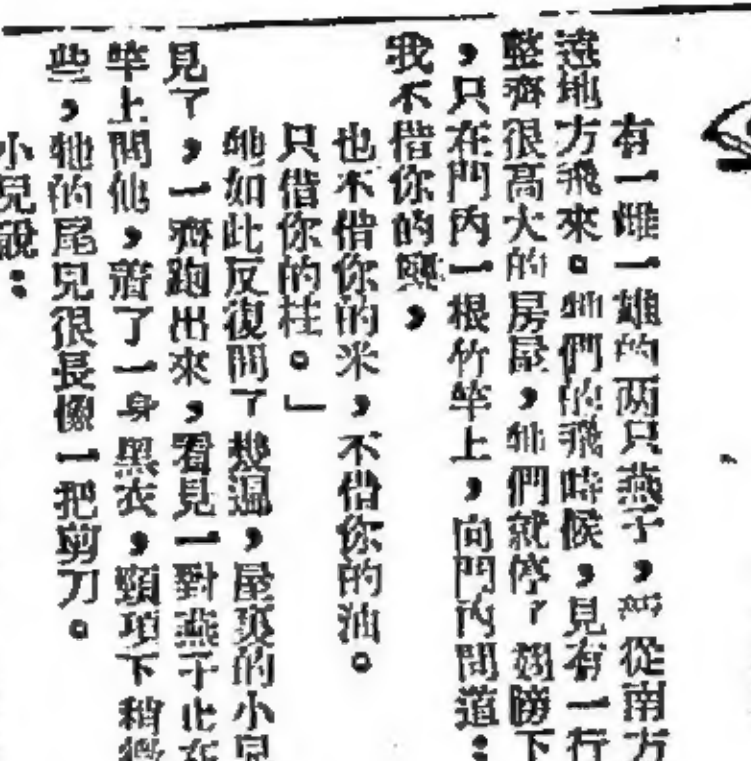 有一雌一雄的两只燕子，從南方
遠地方飛來。牠們的飛時候，見有一行
整齊很高大的房屋，牠們就停了翅膀下
，只在門內一根竹竿上，向門內問道：
我不借你的鹽，
也不借你的米，不借你的油。
只借你的柱。」
牠如此反復問了幾遍，屋裏的小兒
見了，一齊跑出來，看見一對燕子止在
竿上問他，着了一身黑衣，頸項下稍
些，牠的尾兒很長像一把剪刀。
小兒說：